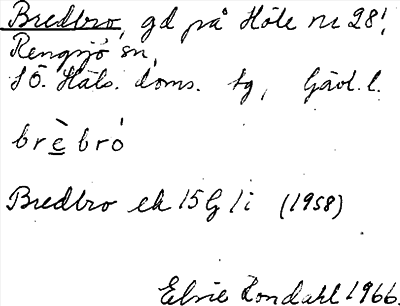 Bredbro, gd på Höle nr 28!,
Rengsjö sn,
SÖ. Häls. doms. tg, Gävl. l.
brè̱brò
Bredbro ek 15G 1i (1958)
Elvie Londahl 1966.